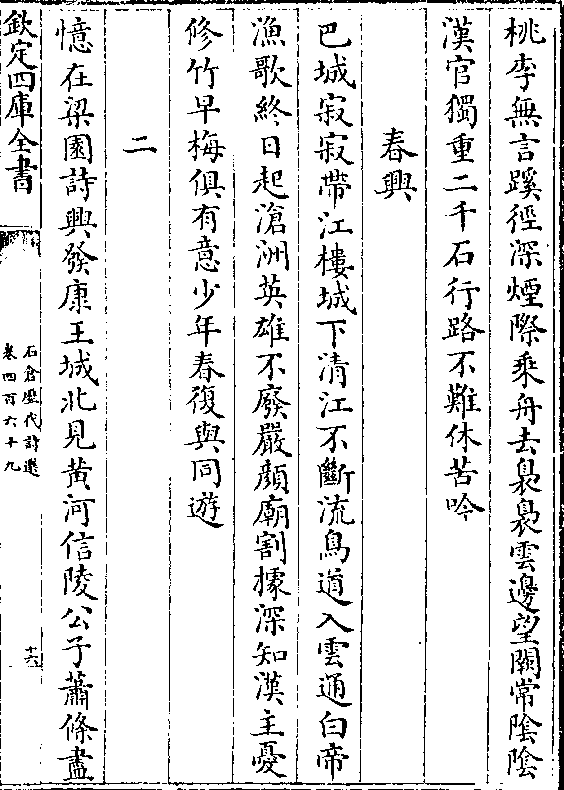 桃李無言蹊徑深煙際乘舟去裊裊雲邊望闕常陰陰
漢官獨重二千石行路不難休苦吟
春興
巴城寂寂帶江樓城下清江不斷流鳥道入雲通白帝
漁歌終日起滄洲英雄不廢嚴顔廟割據深知漢主憂
修竹早梅俱有意少年春復與同遊
二
憶在梁園詩興發康王城北見黄河信陵公子蕭條盡
欽定四庫全書
石倉歷代詩選
卷四百六十九
十六